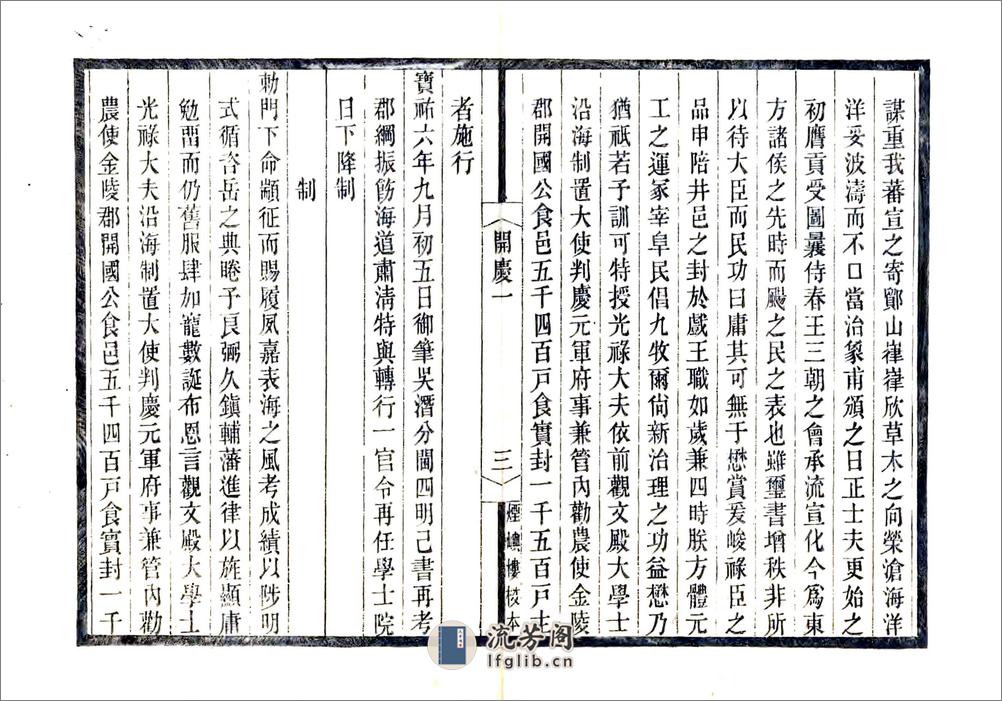 謀重我蕃宣之寄鄞山嵂嵂欣草木之向榮滄海洋
洋妥波濤而不口當治象甫頒之日正士夫更始之
初膺貢受圖曩侍春王三朝之會承流宣化今爲東
方諸侯之先時而颺之民之表也雖璽書增秩非所
以待大臣而民功曰庸其可無于懋賞爰峻祿臣之
品申陪井邑之封於戲王職如歲兼四時朕方體元
工之運冢宰阜民倡九牧爾尙新治理之功益懋乃
猶祇若予訓可特授光祿大夫依前觀文殿大學士
沿海制置大使判慶元軍府事兼管內勸農使金陵
郡開國公食邑五千四百戸食實封一千五百戸主
者施行
開慶一
三
煙嶼樓校本
寶祐六年九月初五日御筆吳潛分閫四明已書再考
郡綱振飭海道肅淸特與轉行一官令再任學士院
日下降制
制
勅門下命顓征而賜履夙嘉表海之風考成績以陟明
式循咨岳之典睠予良弼久鎭輔藩進律以旌顯庸
勉畱而仍舊服肆加寵數誕布恩言觀文殿大學士
光祿大夫沿海制置大使判慶元軍府事兼管內勸
農使金陵郡開國公食邑五千四百戸食實封一千
流芳阁
lfglib.cn